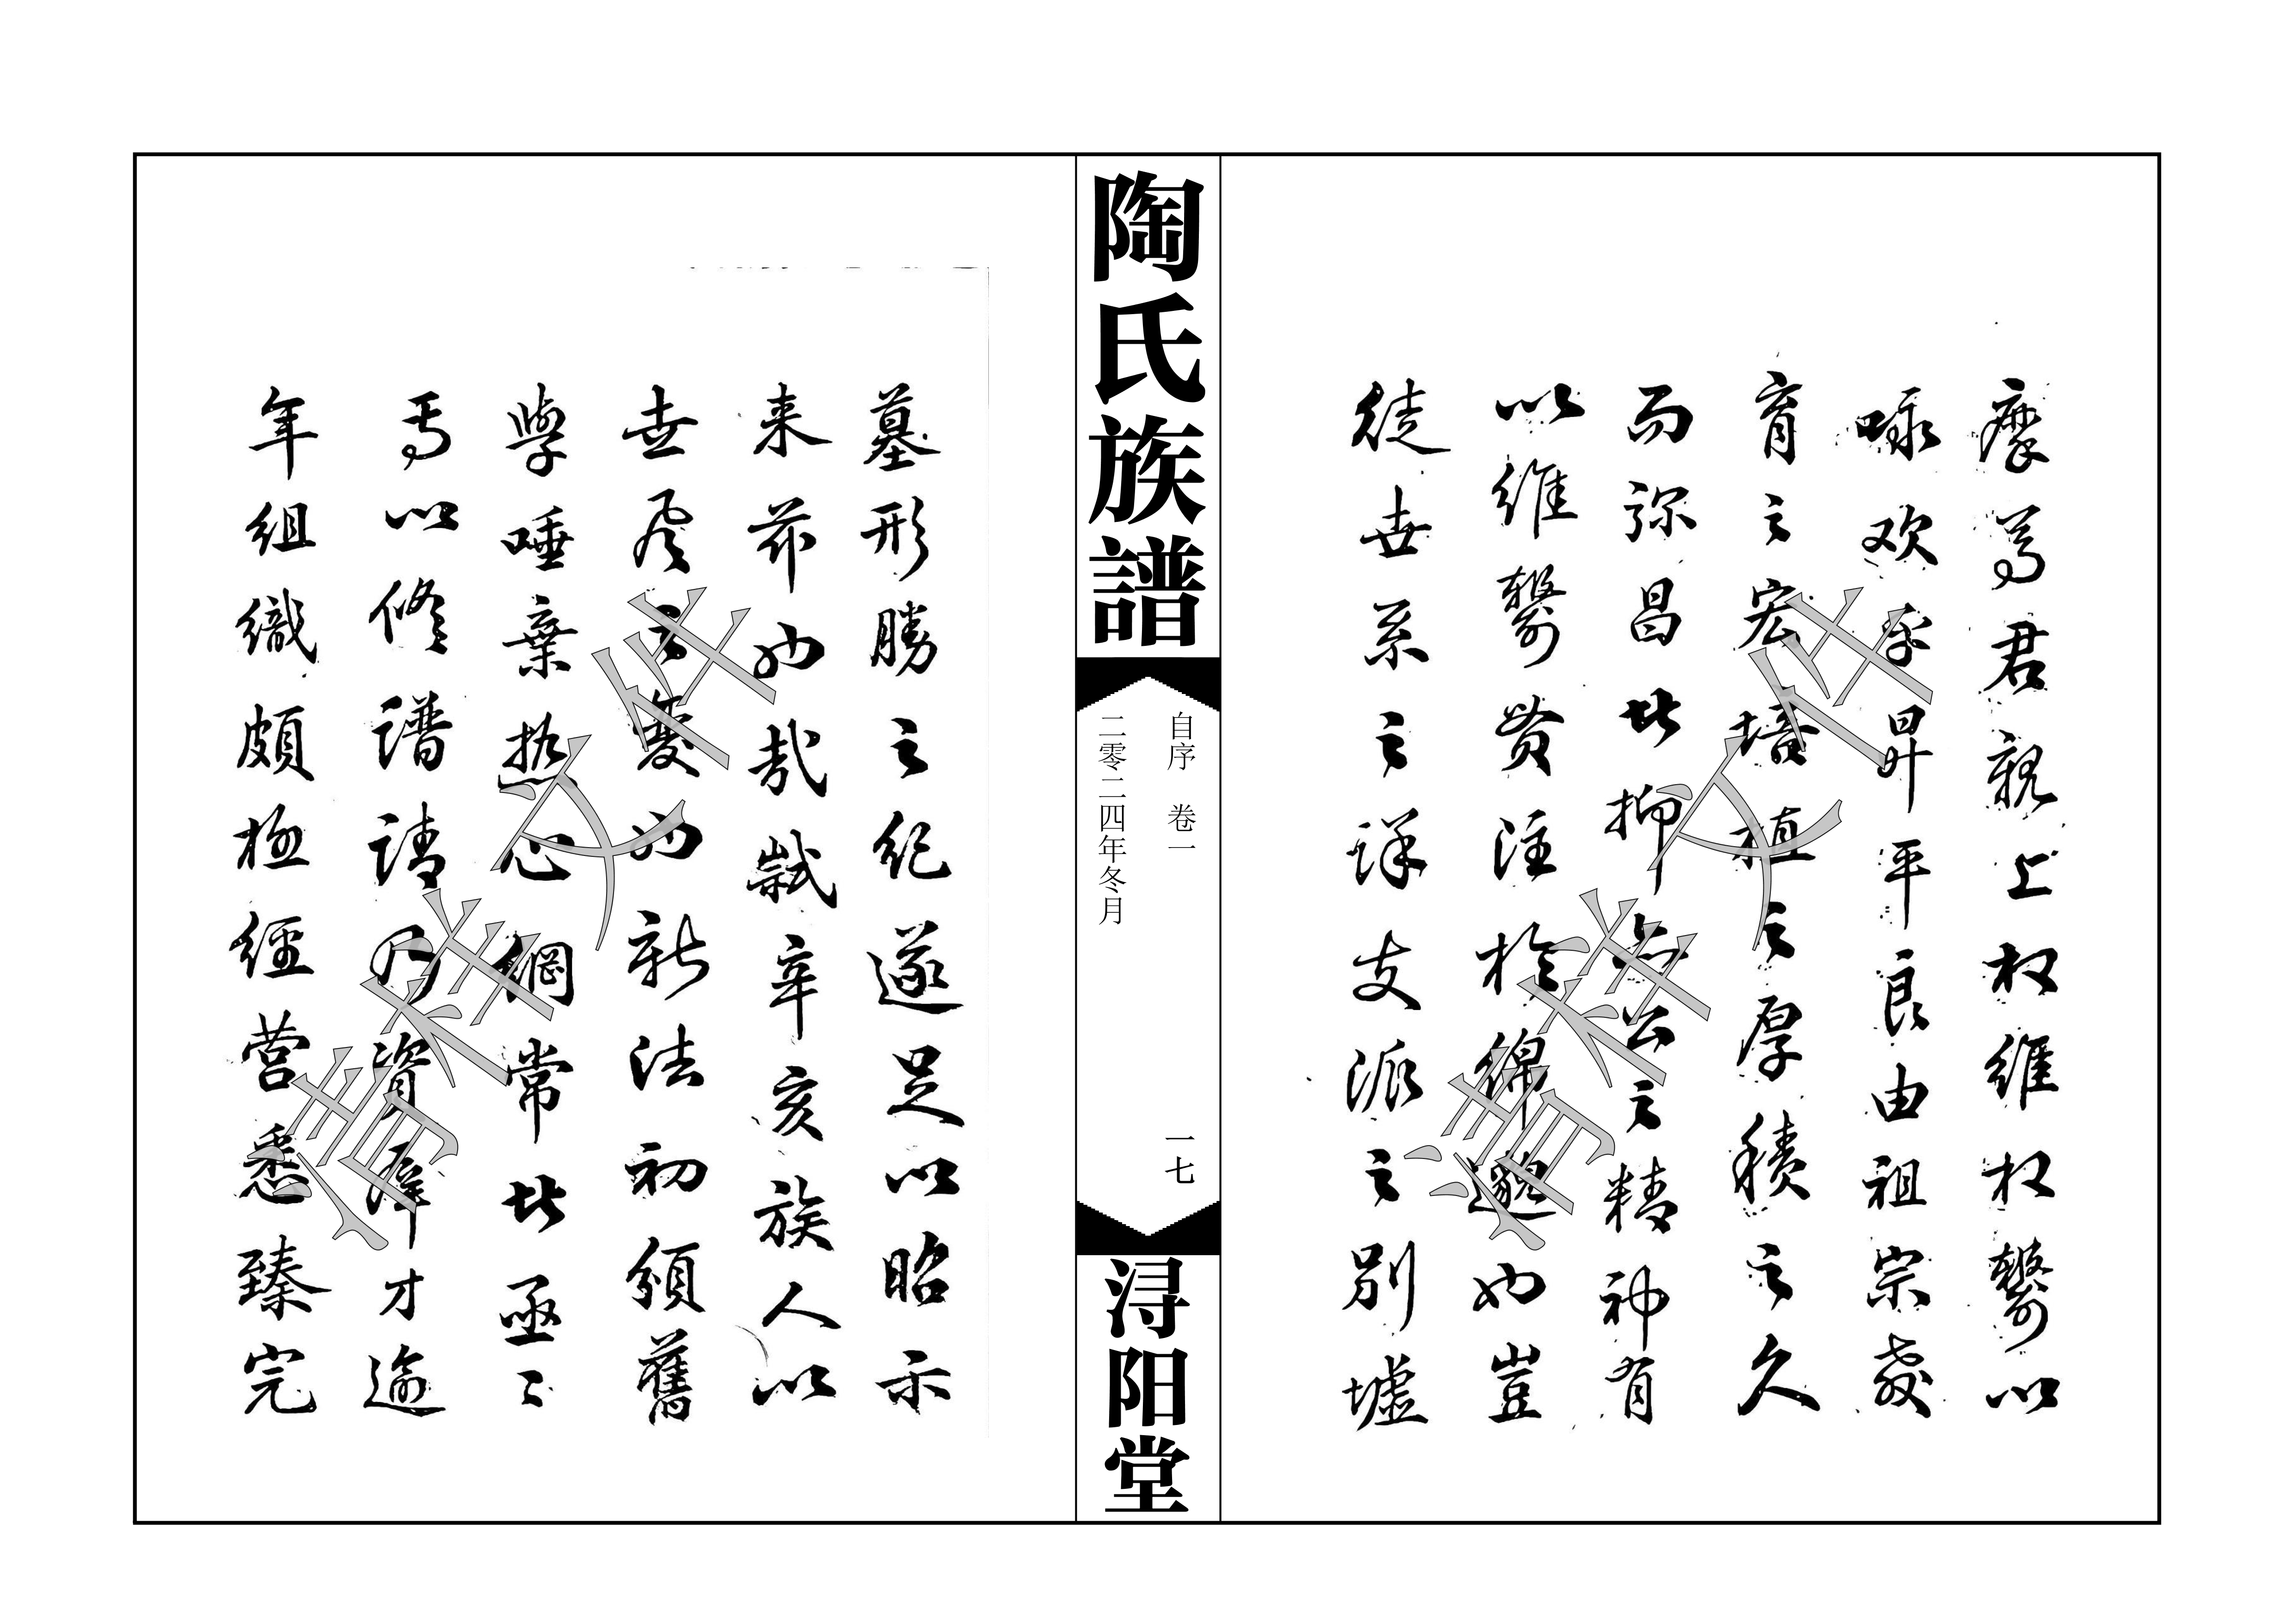 麼為君親上权維权繫以
咏欢乎昇平良由祖宗教
育之宏培植之厚積之久
而弥昌此抑無云之精神有
以維繫贯注於綿邈也豈
徒世系之详支派之别墟
陶氏族譜
自序 卷一
二零二四年冬月
一七
浔阳堂
墓形勝之纪遂足以昭示
来茲也哉弑辛亥族人以
世风之變也新法初頒舊
學唾棄热心綱常此亟亟
焉以修谱请乃資庠才逾
年组織頗極經营悉臻完
清桂文化
清桂文化